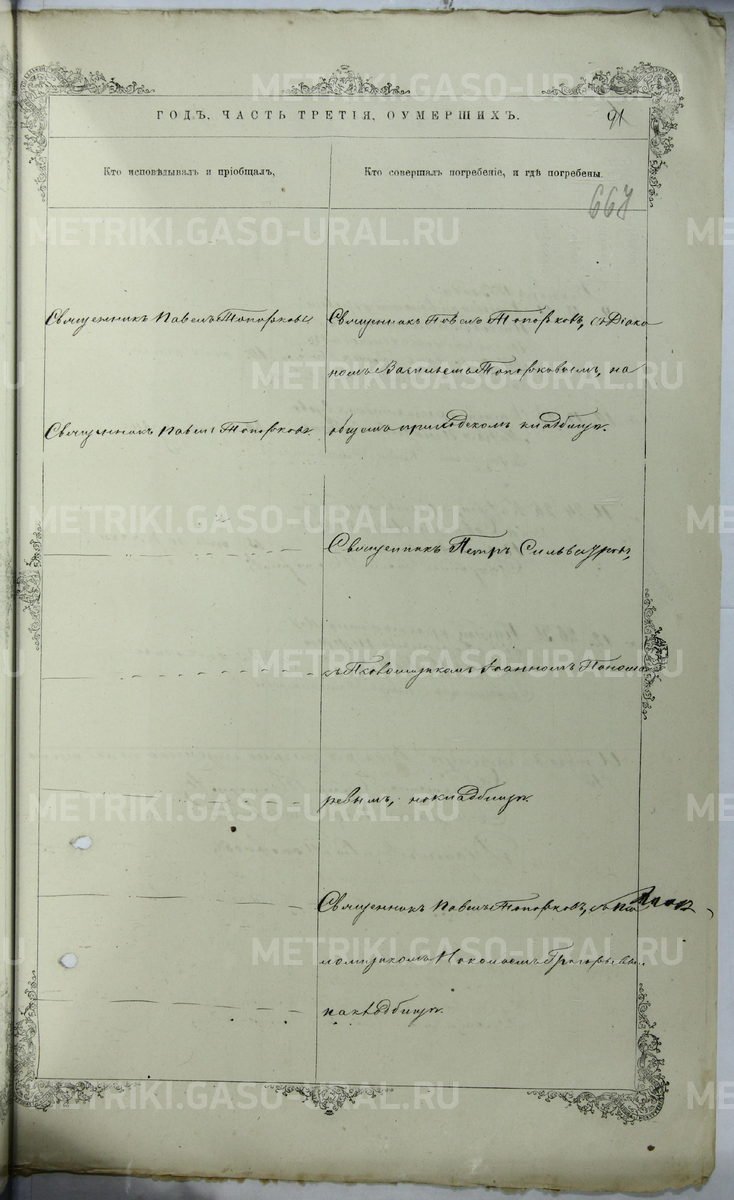 ГОДЪ, ЧАСТЬ ТРЕТІЯ, О УМЕРШИХЪ.
91
Кто исповѣдывалъ и пріобщалъ,
Кто совершалъ погребеніе, и гдѣ погребены.
667
Священникъ Павелъ Топорковъ
Священникъ Павелъ Топорковъ, съ Діако
номъ Васильемъ Топорковымъ, на
Священникъ Павелъ Топорковъ.
общемъ приходскомъ кладбищѣ.
Священникъ Петръ Сильвестровъ,
съ Псаломщикомъ Іоанномъ Поно
ревымъ, на кладбищѣ.
Священникъ Павелъ Топорковъ, съ
ломщикомъ Николаемъ Григорьевы
на кладбищѣ.
METRIKI.GASO-URAL.RU